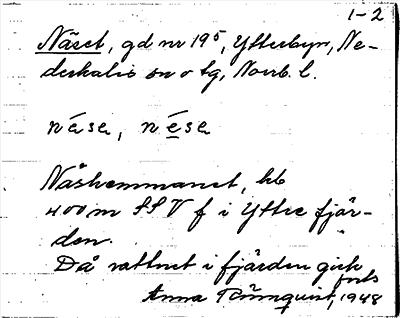 1-2
Näset, gd nr 19⁵, Ytterbyn, Ne-
derkalix sn o tg, Norrb. l.
nä́se, nése
Näshemmanet, bb
400 m SSV f i Yttre fjär-
den.
Då vattnet i fjärden gick
forts
Anna Rönnquist, 1948